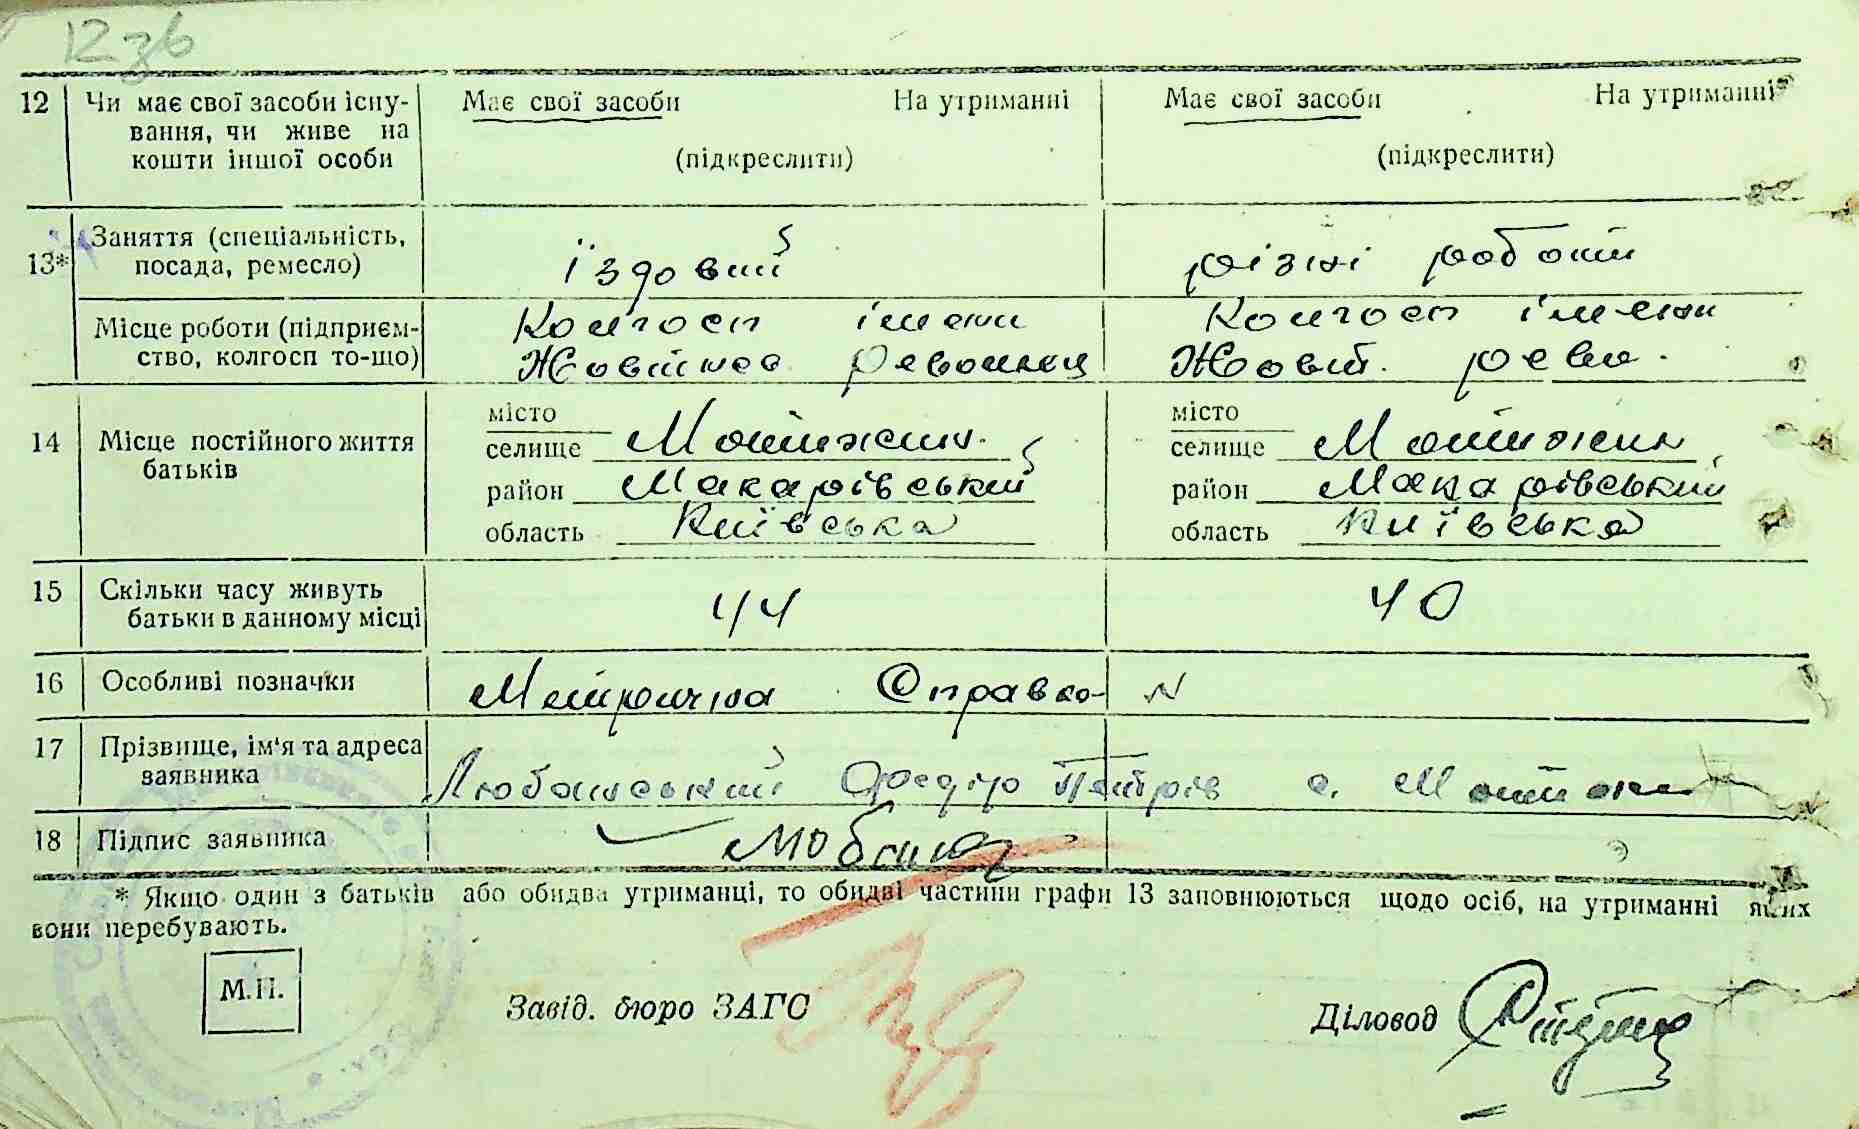 12 зв
12 Чи має свої засоби існу- Має свої засоби На утриманні Має свої засоби На утриманні
вання, чи живе на
кошти іншої особи (підкреслити) (підкреслити)
13* Заняття (спеціальність,
посада, ремесло) їздовий різні роботи
Місце роботи (підприєм- Колгосп імени Колгосп імени
ство, колгосп то-що) Жовтнев Революц Жовт. рев.
місто місто
14 Місце постійного життя селище Мотижин селище Мотижин
батьків район Макарівський район Макарівський
область Київська область Київська
15 Скільки часу живуть
батьки в данному місці 44 40
16 Особливі позначки Метрична Справка N
17 Прізвище, ім'я та адреса
заявника Любанський Федір Петрів с. Мотижин
18 Підпис заявника
* Якщо один з батьків або обидва утриманці, то обидві частини графи 13 заповнюються щодо осіб, на утриманні яких
вони перебувають.
М.П. Завід. бюро ЗАГС Діловод